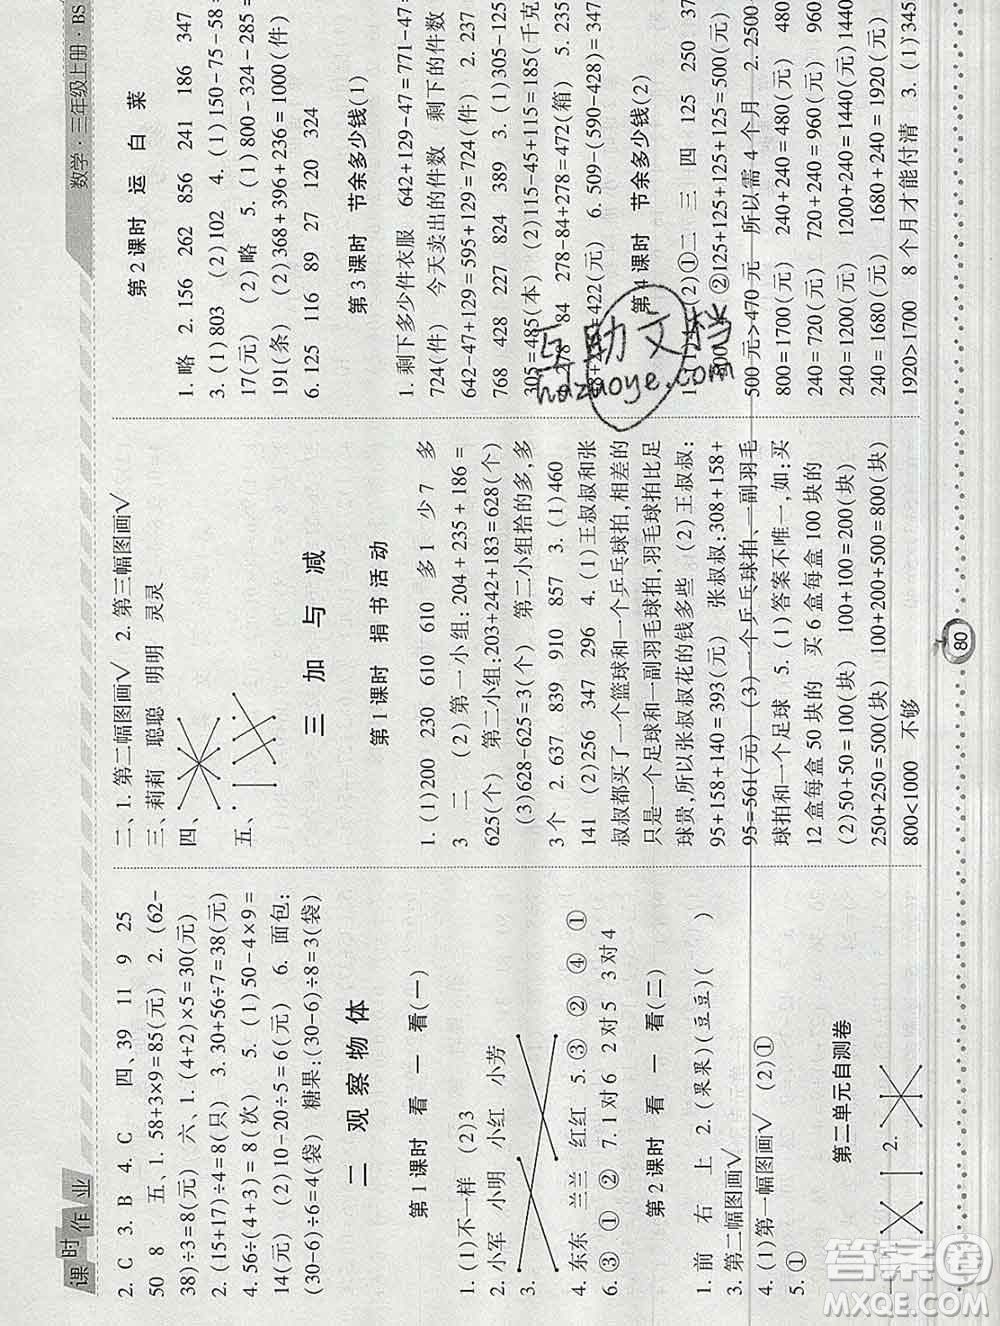 课时作业
数学·三年级上册·BS
2. C 3. B 4. C 四、39 11 9 25
50 8 五、1. 58+3×9=85(元) 2. (62-
38)÷3=8(元) 六、1. (4+2)×5=30(元)
2. (15+17)÷4=8(只) 3. 30+56÷7=38(元)
4. 56÷(4+3)=8(次) 5. (1)50-4×9=
14(元) (2)10-20÷5=6(元) 6. 面包:
(30-6)÷6=4(袋) 糖果:(30-6)÷8=3(袋)
二 观察物体
第1课时 看一看(一)
1. (1)不一样 (2)3
2. 小军 小明 小红 小芳
3.
4. 东东 兰兰 红红 5. ③ ② ④ ①
6. ③ ① ② 7. 1对6 2对5 3对4
第2课时 看一看(二)
1. 前 右 上 2. (果果)(豆豆)( )
3. 第二幅图画√
4. (1)第一幅图画√ (2)①
5. ①
第二单元自测卷
一、1. 2.
二、1. 第二幅图画√ 2. 第三幅图画√
三、莉莉 聪聪 明明 灵灵
四、
五、
三 加与减
第1课时 捐书活动
1. (1)200 230 610 610 多1 少7 多
3 二 (2)第一小组:204+235+186=
625(个) 第二小组:203+242+183=628(个)
(3)628-625=3(个) 第二小组拾的多,多
3个 2. 637 839 910 857 3. (1)460
141 (2)256 347 296 4. (1)王叔叔和张
叔叔都买了一个篮球和一个乒乓球拍,相差的
只是一个足球和一副羽毛球拍,羽毛球拍比足
球贵,所以张叔叔花的钱多些 (2)王叔叔:
95+158+140=393(元) 张叔叔:308+158+
95=561(元) (3)一个乒乓球拍、一副羽毛
球拍和一个足球 5. (1)答案不唯一,如:买
12盒每盒50块的 买6盒每盒100块的
(2)50+50=100(块) 100+100=200(块)
250+250=500(块) 100+200+500=800(块)
800<1000 不够
第2课时 运白菜
1. 略 2. 156 262 856 241 186 347
3. (1)803 (2)102 4. (1)150-75-58=
17(元) (2)略 5. (1)800-324-285=
191(条) (2)368+396+236=1000(件)
6. 125 116 89 27 120 324
第3课时 节余多少钱(1)
1. 剩下多少件衣服 642+129-47=771-47=
724(件) 今天卖出的件数 剩下的件数
642-47+129=595+129=724(件) 2. 237
768 428 227 824 389 3. (1)305-125+
305=485(本) (2)115-45+115=185(千克)
278 84 278-84+278=472(箱) 5. 235
=422(元) 6. 509-(590-428)=347
第4课时 节余多少钱(2)
(2)①二 三 四 125 250 375
500 ②125+125+125+125=500(元)
500元>470元 所以需4个月 2. 2500-
800=1700(元) 240+240=480(元) 480+
240=720(元) 720+240=960(元) 960+
240=1200(元) 1200+240=1440(元) 1440+
240=1680(元) 1680+240=1920(元)
1920>1700 8个月才能付清 3. (1)345
80
互助文档
hdzuoye.com
答案圈
MXQE.COM